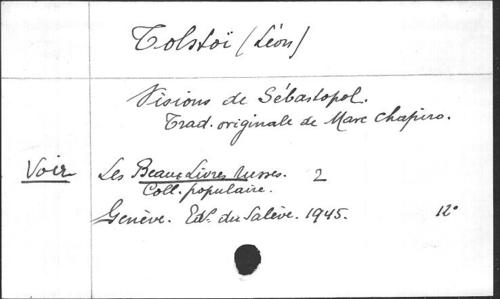 Tolstoï (Léon)
Visions de Sébastopol.
Trad. originale de Marc Chapiro.
Voir Les Beaux Livres russes. 2
Coll. populaire.
Genève. Ed. du Salève. 1945. 12°